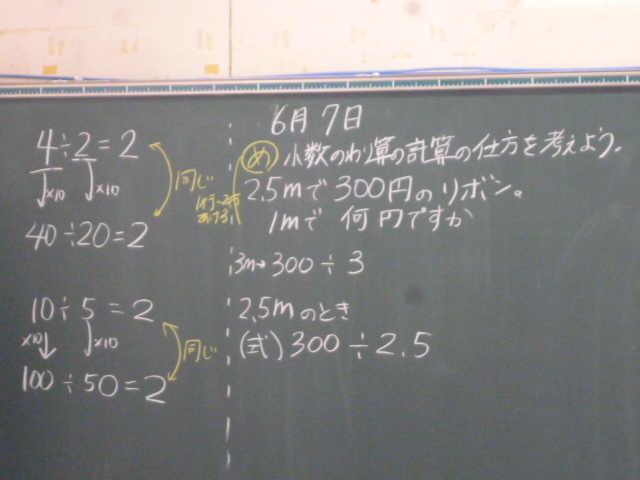 4÷2=2
×10 ×10
同じ
40÷20=2
10÷5=2
×10 ×10
同じ
100÷50=2
6月7日
め 小数のわり算の計算の仕方を考えよう。
2.5mで300円のリボン。
1mで何円ですか
3m→300÷3
2.5mのとき
(式)300÷2.5